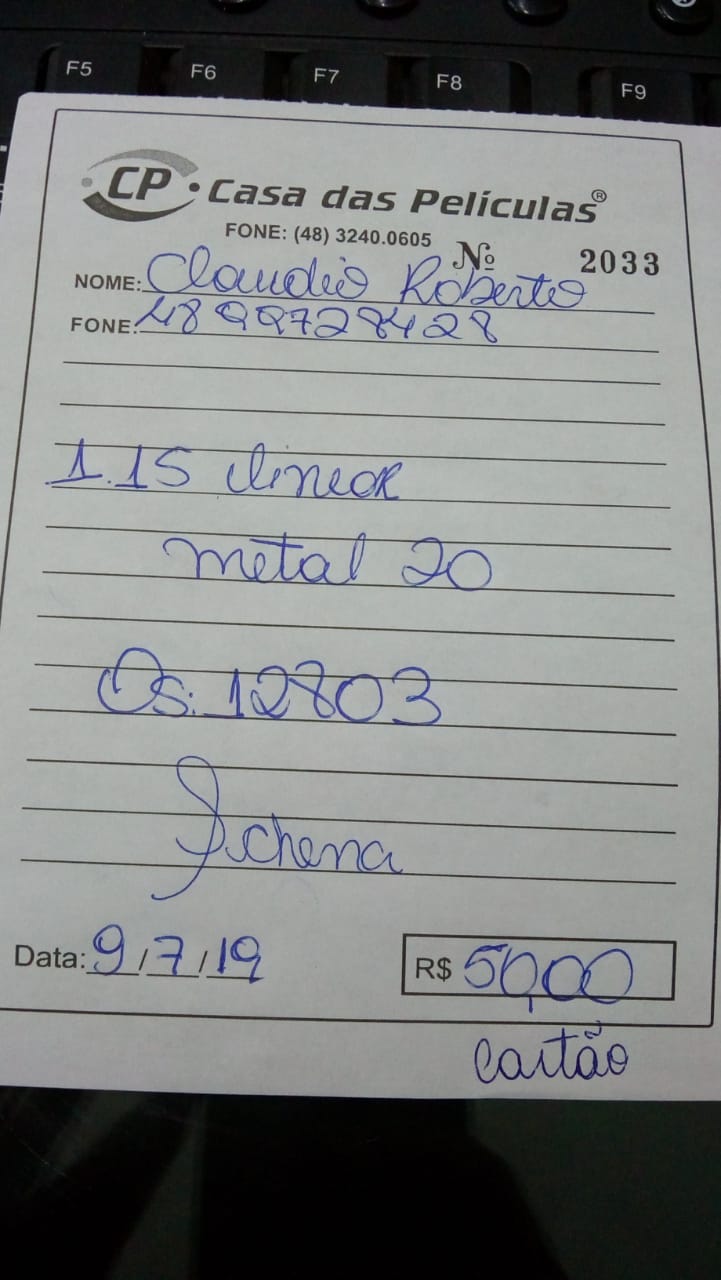 F5 F6 F7 F8 F9
CP • Casa das Películas®
FONE: (48) 3240.0605
Nº 2033
NOME: Claudio Roberto
FONE: 48 999728428
1.15 linear
metal 20
Os: 12803
Schena
Data: 9/7/19
R$ 50,00
cartão